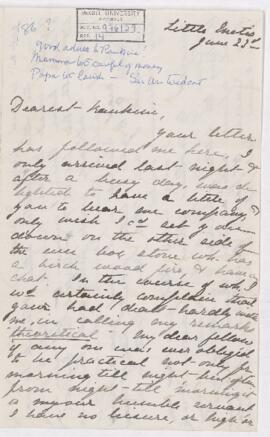 McGILL UNIVERSITY
ARCHIVES
ACC. NO. 
REF. 14
186?
good advice to Rankine
Mamma too careful of money
Papa too lavish -
Little Metis
June 23rd
Dearest Rankine,
Your letter
has followed me here, I
only arrived last night &
after a busy day, was de-
lighted to have a letter of
yours to bear me company, &
only wish I cd set you
down on the other side of
the
a birch wood fire & have a
chat. In the course of wh. I
wd certainly complain that
you had dealt hardly with
me in calling my remarks
theoretical. My dear fellow
if any one was ever obliged
to be practical not only fr.
morning till night but
from night till morning it
is your humble servant
I have no leisure, or high or